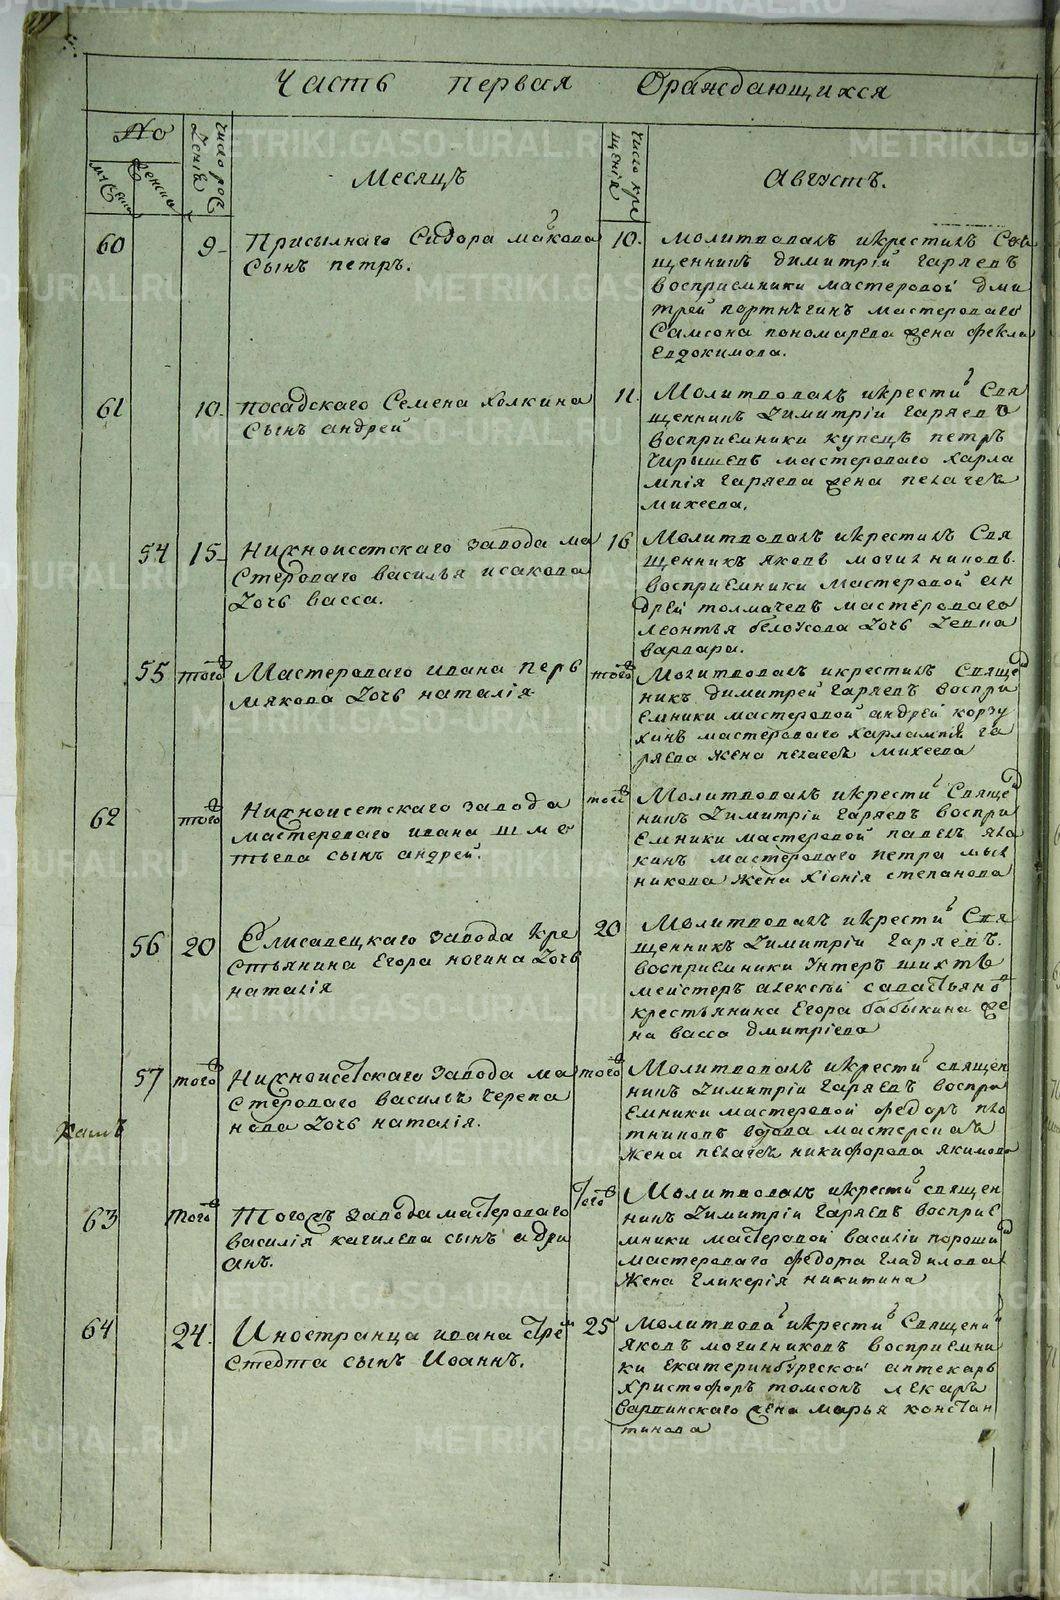 Часть первая Ораждающихся
No
мужеска
женска
Число рождения
Месяцъ
Число крещения
Августъ.
60
9
Присылнаго Сидора макова
Сынъ петръ.
10.
Молитвовалъ икрестилъ Свя
щенникъ димитрiй гаряевъ
восприемники мастеровой дми
трей портнягинъ мастероваго
Самсона пономарева жена фекла
Евдокимова.
61
10
посадскаго Семена холкина
Сынъ андрей
11.
Молитвовалъ икрести Свя
щенникъ Димитрiй гаряевъ
восприемники купецъ петръ
Чирышевъ мастероваго харла
мпiя гаряева жена пелагея
михеева.
54
15
Нижноисетскаго завода ма
Стероваго василья исакова
Дочь васса.
16
Молитвовалъ икрестилъ Свя
щенникъ яковъ могилниковъ
восприемники мастеровой ан
дрей толмачевъ мастероваго
леонтья белоусова Дочь Девка
варвара.
55
того
Мастероваго ивана перв
мякова Дочь наталiя
того
Молитвовалъ икрестилъ Свяще
никъ димитрей гаряевъ воспри
емники мастеровой андрей корзу
хинъ мастероваго харлампiя га
ряева жена пелагея михеева
62
того
Нижноисетскаго завода
мастероваго ивана шме
тьева сынъ андрей.
того
Молитвовалъ икрести Свяще
никъ Димитрiй гаряевъ воспри
емники мастеровой павелъ яла
кинъ мастероваго петра мыл
никова жена хiонiя степанова
56
20
Елисавецкаго завода кре
Стьянина Егора ногина Дочь
наталiя
20
Молитвовалъ икрести Свя
щенникъ Димитрiй гаряевъ.
восприемники Унтеръ шихтъ
мейстеръ алексѣй савастьяно
крестьянина Егора бабыкина же
на васса дмитрiева
57
того
Нижноисетскаго завода ма
Стероваго василья черепа
нова Дочь наталiя.
того
Молитвовалъ икрести священ
никъ Димитрiй гаряевъ воспри
емники мастеровой федоръ пло
тниковъ вдова мастерска
жена пелагея никифорова якимова
63
того
Тогожъ завода мастероваго
василiя кагилева сынъ адри
анъ.
того
Молитвовалъ икрести священ
никъ Димитрiй гаряевъ восприе
мники мастеровой василiи пороши
мастероваго федота гладилова
жена гликерiя никитина
64
24.
Иностранца ивана
Стедта сынъ Иоаннъ.
25
Молитвова икрести Священи
яковъ могилниковъ восприемни
ки екатеринбургской аптекарь
христофоръ томсонъ лекаря
варвинскаго жена марья констан
тинова